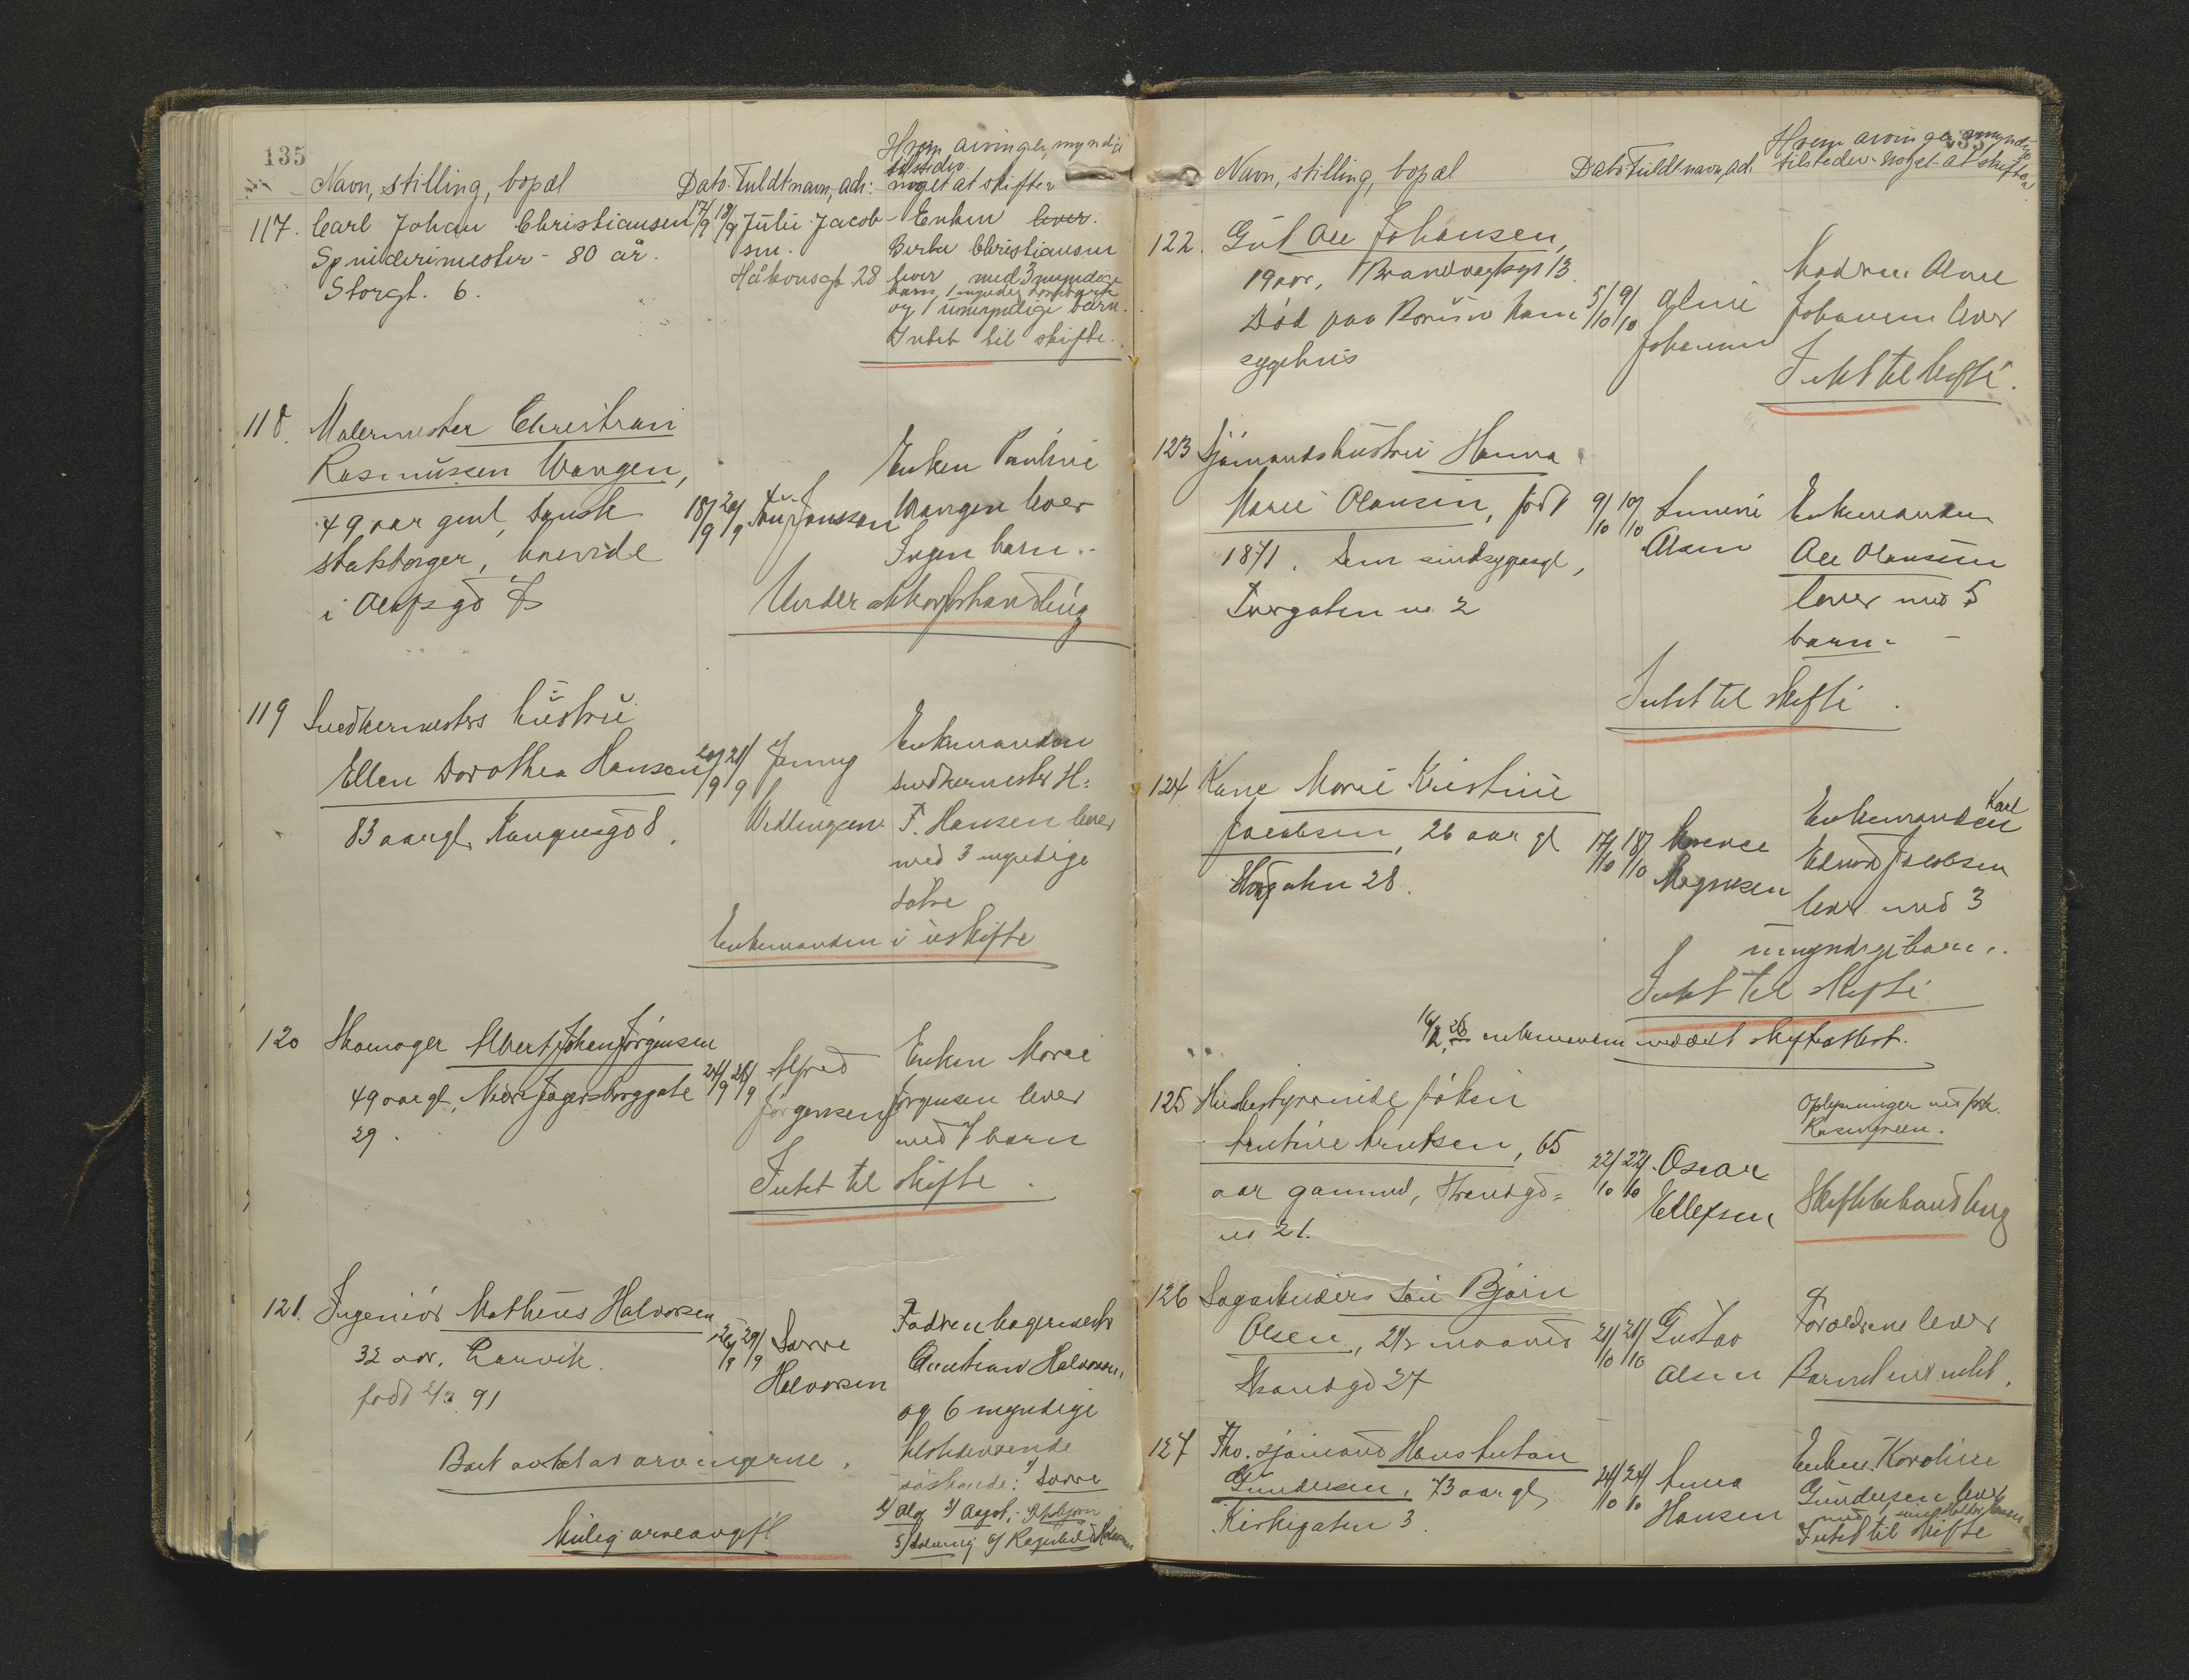 135
Navn, stilling, bopæl
Dato Fuldt navn, adr:
Hvem arvinger, myndige
tilstede
noget at skifte
117. Carl Johan Christiansen 17/9 18/9 Julie Jacob- Enken lever.
Spinderimester - 80 år. sen. Christiansen
Storgt. 6. Håkonsgt. 28 lever med 3 myndige
barn, 1 myndig
og 1 umyndige barn.
Intet til skifte.
118. Malermester Christian
Rasmussen Wangen, Enken Pauline
49 aar gml, Dansk 18/9 20/9 Wangen lever
statsborger, Ingen barn.
i Olafsgd
Under
119 Snedkermesters hustru
Ellen Dorothea Hansen 20/9 21/9 Jenny Enkemanden
snedkermester H.
83 aar gl, Kongensgd 8. F. Hansen lever
med 3 myndige
døtre
Enkemanden i uskifte
120 Skomager Albert Johan Jørgensen
49 aar gl, Nedre Jegersborggate 24/9 26/9 Alfred Enken Marie
29. Jørgensen Jørgensen lever
med 7 barn
Intet til skifte.
121. Ingeniør Matheus Halvorsen
32 aar, Larvik. 26/9 29/9 Sverre Faderen
Halvorsen Christian Halvorsen,
født 91 og 6 myndige
tilstedeværende
søskende: 1) Sverre
Boet av arvingerne.
2) Alf 3) Aagot, 4)
5) 6) Ragnhild Halvorsen
arveavgift
Navn, stilling, bopæl
Dato Fuldt navn, ad.
Hvem arvinger, myndige
tilstede - noget at skifte
122. Gut Ole Johansen,
19 aar, Brandvagtsgt 13. Moderen Aline
Død paa 5/10 9/10 Aline Johansen lever
sygehus Johansen
Intet til skifte.
123 Sjømandshustru Hanna
Marie Olausen, født 9/10 10/10 Enkemanden
1871. Olsen Ole Olausen
Tvergaten no 2 lever med 5
barn.
Intet til skifte.
124 Kone Marie Kristine
Jacobsen, 26 aar gl 17/10 18/10 Enkemanden Karl
28. Magnusen Edvard Jacobsen
lever med 3
umyndige barn.
Intet til skifte
enkemanden meddelt skifteattest.
125 Husbestyrerinde frøken
Knutsen, 65 22/10 22/10 Oscar Oplysninger ved frk.
Rosengreen.
aar gammel, Strandgd= Ellefsen Skiftebehandling
no 21.
126 Sagarbeiders søn Bjørn
Olsen, 2½ maaned 21/10 21/10 Gustav Forældrene lever
Strandgd 27 Olsen Barnet eiet intet.
127 Fhv. sjømand Hans Anton
Gundersen, 73 aar gl, 24/10 24/10 Anna Enken Karoline
Kirkegaten 3. Hansen Gundersen lever
Intet til skifte